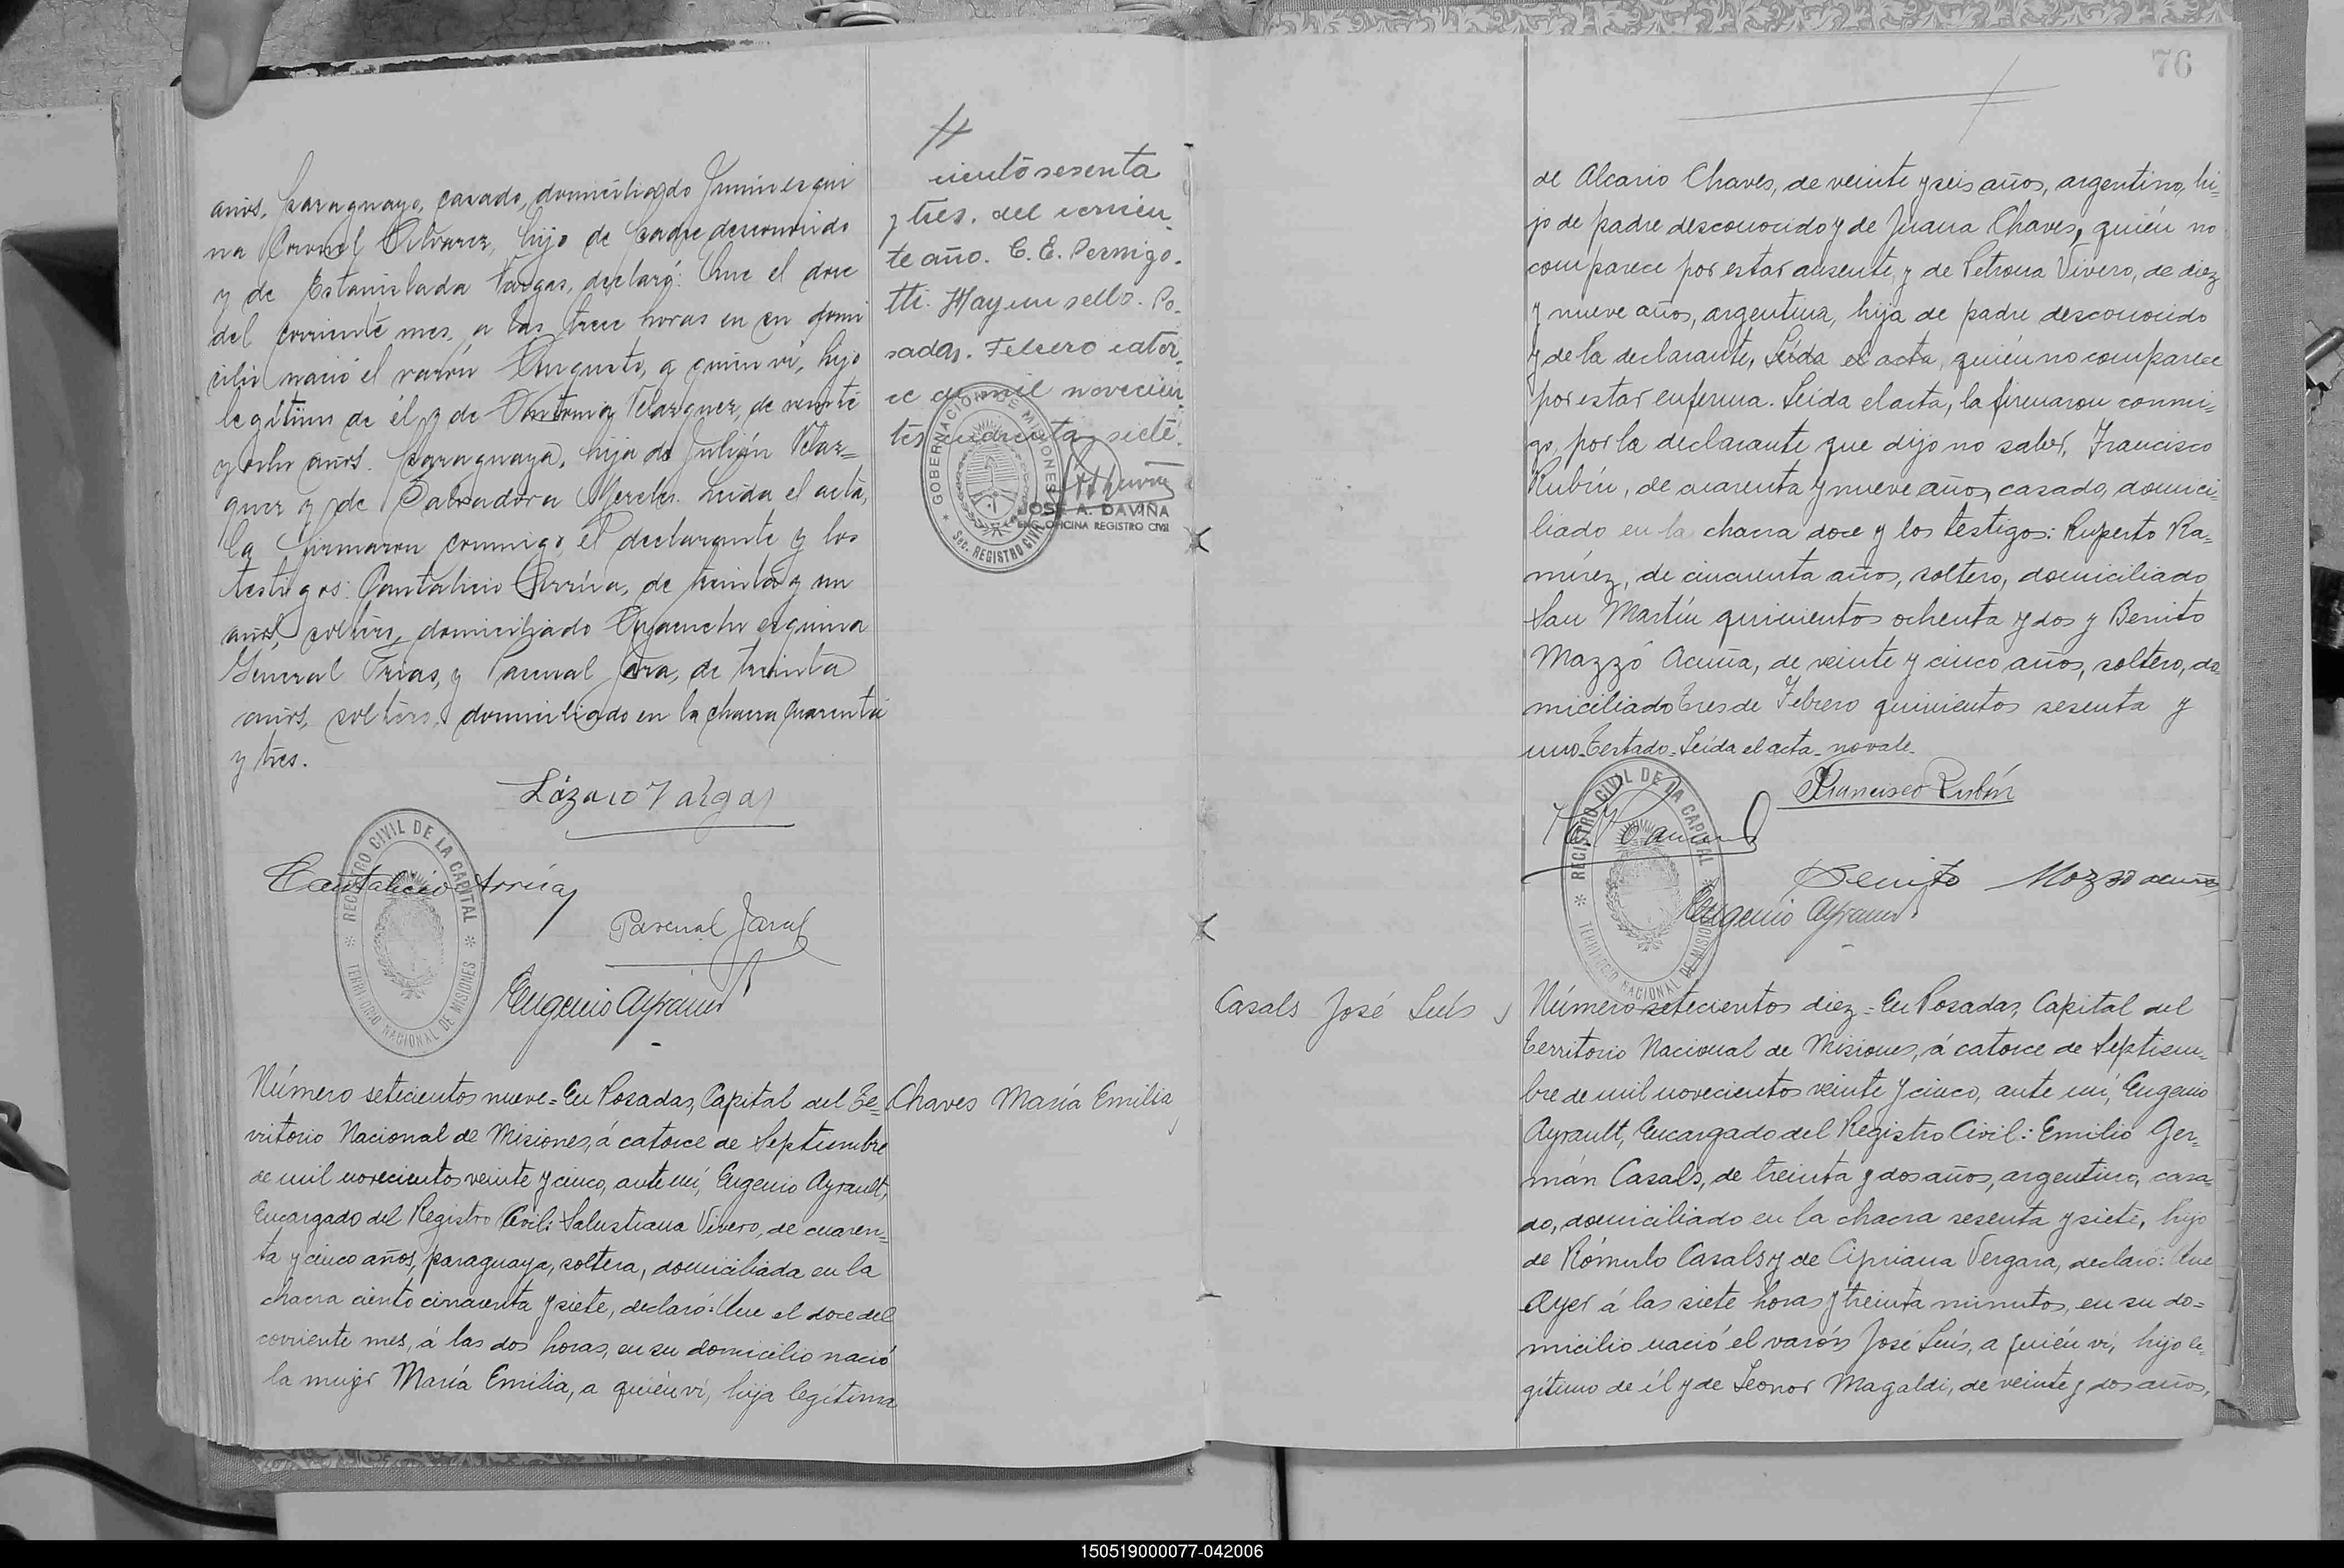 años, paraguayo, casado, domiciliado Junín esqui
na Coronel Alvarez, hijo de padre desconocido
y de Estanislada Vargas, declaró: Que el doce
del corriente mes, a las trece horas en su domi
cilio nació el varón Augusto, a quien vi, hijo
legítimo de él y de Antonia Velazquez, de veinte
y ocho años, paraguaya, hija de Julián Velaz=
quez y de Salvadora Mereles. Leída el acta,
la firmaron conmigo, el declarante y los
testigos: Cantalicio Arrúa, de treinta y un
años, soltero, domiciliado Ayacucho esquina
General Frias, y Pascual Jara, de treinta
años, soltero, domiciliado en la chacra cuarenta
y tres.
Lázaro Vargas
Cantalicio Arrúa
Pascual Jara
Eugenio Ayrault
REGISTRO CIVIL DE LA CAPITAL
TERRITORIO NACIONAL DE MISIONES
Número setecientos nueve = En Posadas, Capital del Te=
rritorio Nacional de Misiones, á catorce de Septiembre
de mil novecientos veinte y cinco, ante mí, Eugenio Ayrault,
Encargado del Registro Civil: Salustiana Vivero, de cuaren=
ta y cinco años, paraguaya, soltera, domiciliada en la
chacra ciento cincuenta y siete, declaró: Que el doce del
corriente mes, á las dos horas, en su domicilio nació
la mujer María Emilia, a quién ví, hija legítima
ciento sesenta
y tres. del corrien_
te año. C. E. Pernigo_
tti. Hay un sello. Po_
sadas. Febrero cator_
ce de mil novecien_
tos cuarenta y siete.
GOBERNACION DE MISIONES
Sec. REGISTRO CIVIL
JOSE A. DAVIÑA
ENC. OFICINA REGISTRO CIVIL
Chaves María Emilia
76
de Alcario Chaves, de veinte y seis años, argentino, hi=
jo de padre desconocido y de Juana Chaves, quién no
comparece por estar ausente, y de Petrona Vivero, de diez
y nueve años, argentina, hija de padre desconocido
y de la declarante, Leída el acta, quién no comparece
por estar enferma. Leída el acta, la firmaron conmi=
go, por la declarante que dijo no saber, Francisco
Rubín, de cuarenta y nueve años, casado, domici=
liado en la chacra doce y los testigos: Ruperto Ra=
mírez, de cincuenta años, soltero, domiciliado
San Martín quinientos ochenta y dos y Benito
Mazzó Acuña, de veinte y cinco años, soltero, do=
miciliado Tres de Febrero quinientos sesenta y
uno_Testado_Leída el acta_no vale_
Francisco Rubín
Benito Mozzo acuña
Eugenio Ayrault
REGISTRO CIVIL DE LA CAPITAL
TERRITORIO NACIONAL DE MISIONES
Casals José Luís
Número setecientos diez = En Posadas, Capital del
Territorio Nacional de Misiones, á catorce de Septiem=
bre de mil novecientos veinte y cinco, ante mí, Eugenio
Ayrault, Encargado del Registro Civil: Emilio Ger=
mán Casals, de treinta y dos años, argentino, casa=
do, domiciliado en la chacra sesenta y siete, hijo
de Rómulo Casals y de Cipriana Vergara, declaró: Que
Ayer á las siete horas y treinta minutos, en su do=
micilio nació el varón José Luís, a quién ví, hijo le=
gítimo de él y de Leonor Magaldi, de veinte y dos años,
150519000077-042006